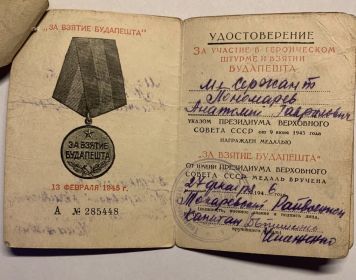 "ЗА ВЗЯТИЕ БУДАПЕШТА"
ЗА ВЗЯТИЕ
БУДАПЕШТА
13 ФЕВРАЛЯ 1945 г.
А № 285448
УДОСТОВЕРЕНИЕ
ЗА УЧАСТИЕ В ГЕРОИЧЕСКОМ
ШТУРМЕ И ВЗЯТИИ
БУДАПЕШТА
Мл. Сержант
Пономарев
Анатолий Гаврилович
УКАЗОМ ПРЕЗИДИУМА ВЕРХОВНОГО
СОВЕТА СССР от 9 июня 1945 года
НАГРАЖДЕН МЕДАЛЬЮ
"ЗА ВЗЯТИЕ БУДАПЕШТА"
ОТ ИМЕНИ ПРЕЗИДИУМА ВЕРХОВНОГО
СОВЕТА СССР МЕДАЛЬ ВРУЧЕНА
194 6
Капитан